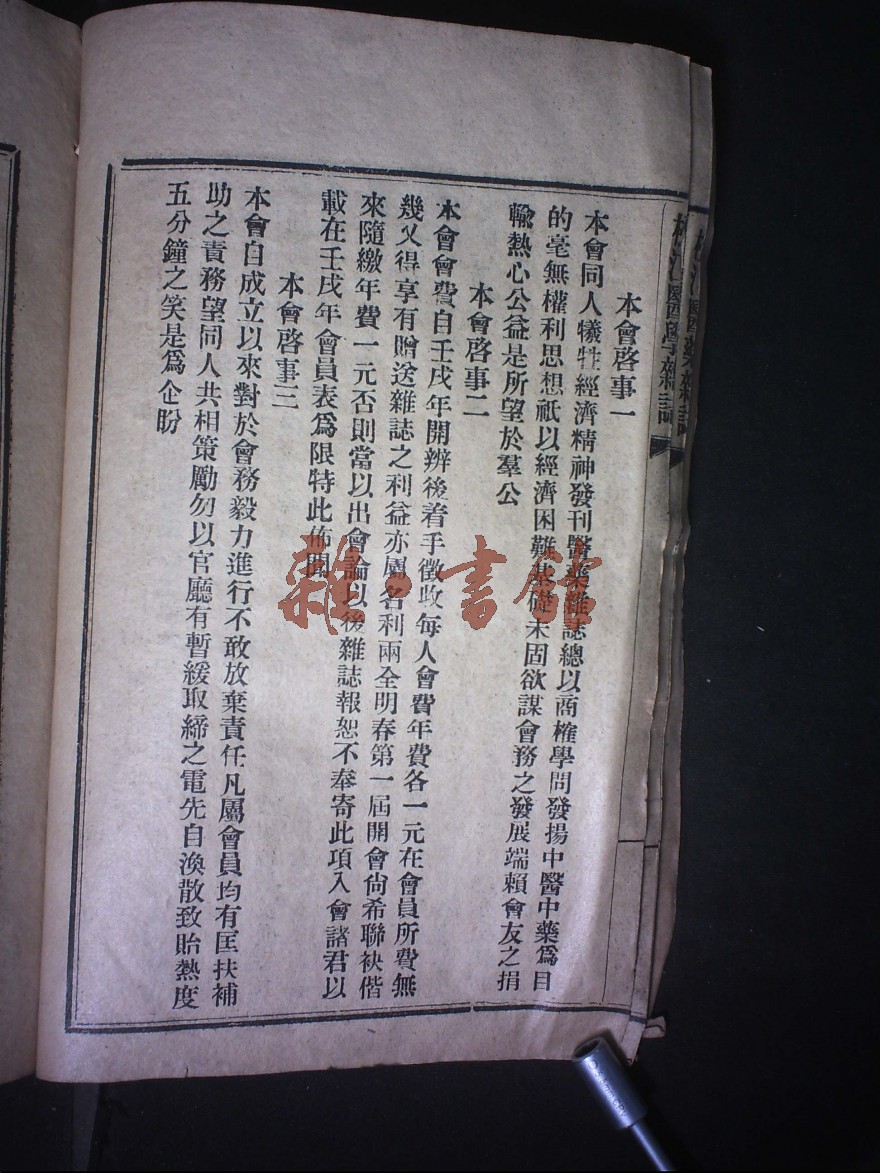 醫學雜誌
本會啓事一
本會同人犧牲經濟精神發刊醫藥雜誌總以商榷學問發揚中醫中藥爲目
的毫無權利思想祇以經濟困難基礎未固欲謀會務之發展端賴會友之捐
輸熱心公益是所望於羣公
本會啓事二
本會會費自壬戌年開辦後着手徵收每人會費年費各一元在會員所費無
幾又得享有贈送雜誌之利益亦屬名利兩全明春第一屆開會尙希聯袂偕
來隨繳年費一元否則當以出會論以後雜誌報恕不奉寄此項入會諸君以
載在壬戌年會員表爲限特此佈聞
本會啓事三
本會自成立以來對於會務毅力進行不敢放棄責任凡屬會員均有匡扶補
助之責務望同人共相策勵勿以官廳有暫緩取締之電先自渙散致貽熱度
五分鐘之笑是爲企盼
雜書館